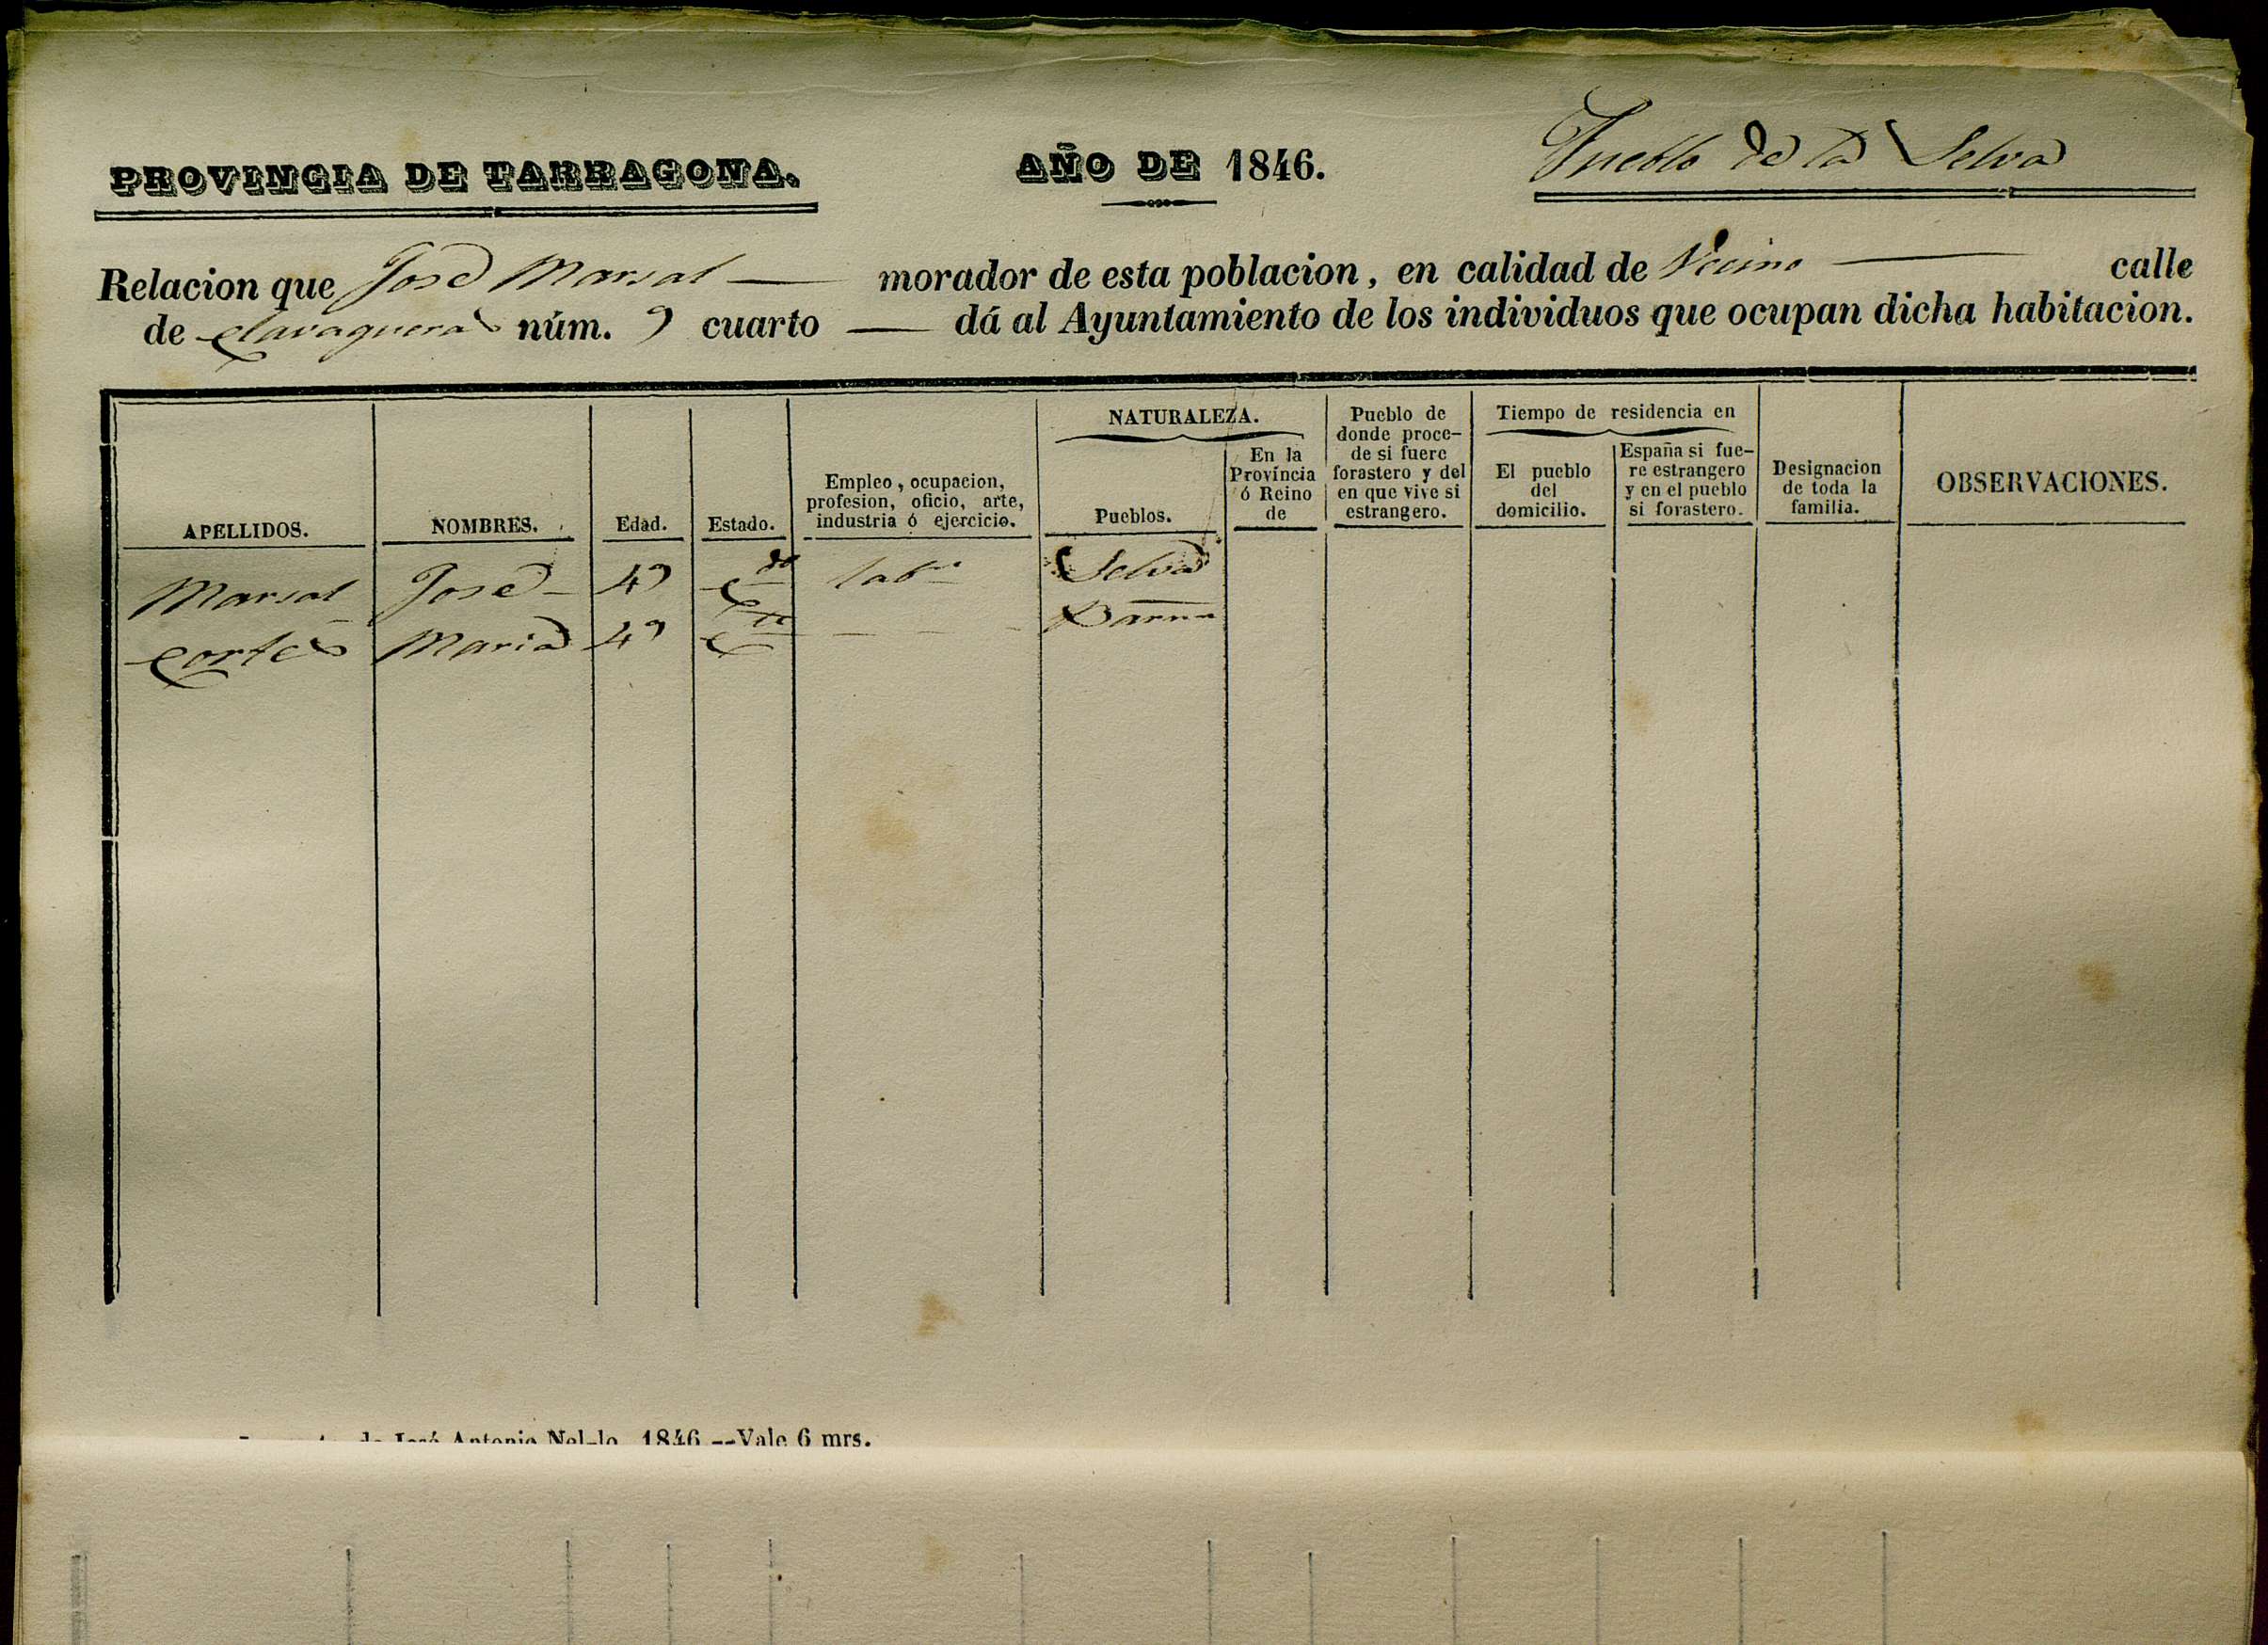 PROVINCIA DE TARRAGONA.
AÑO DE 1846.
Pueblo de la Selva
Relacion que José Marsal — morador de esta poblacion, en calidad de Vecino — calle
de Clavaguera núm. 9 cuarto — dá al Ayuntamiento de los individuos que ocupan dicha habitacion.
APELLIDOS.
NOMBRES.
Edad.
Estado.
Empleo, ocupacion,
profesion, oficio, arte,
industria ó ejercicio.
NATURALEZA.
Pueblos.
En la
Província
ó Reino
de
Pueblo de
donde proce-
de si fuere
forastero y del
en que vive si
estrangero.
Tiempo de residencia en
El pueblo
del
domicilio.
España si fue-
re estrangero
y en el pueblo
si forastero.
Designacion
de toda la
familia.
OBSERVACIONES.
Marsal José 49 Cdo labr Selva
Cortés Maria 49 C — — — Barna
de José Antonio Nel-lo 1846.--Vale 6 mrs.